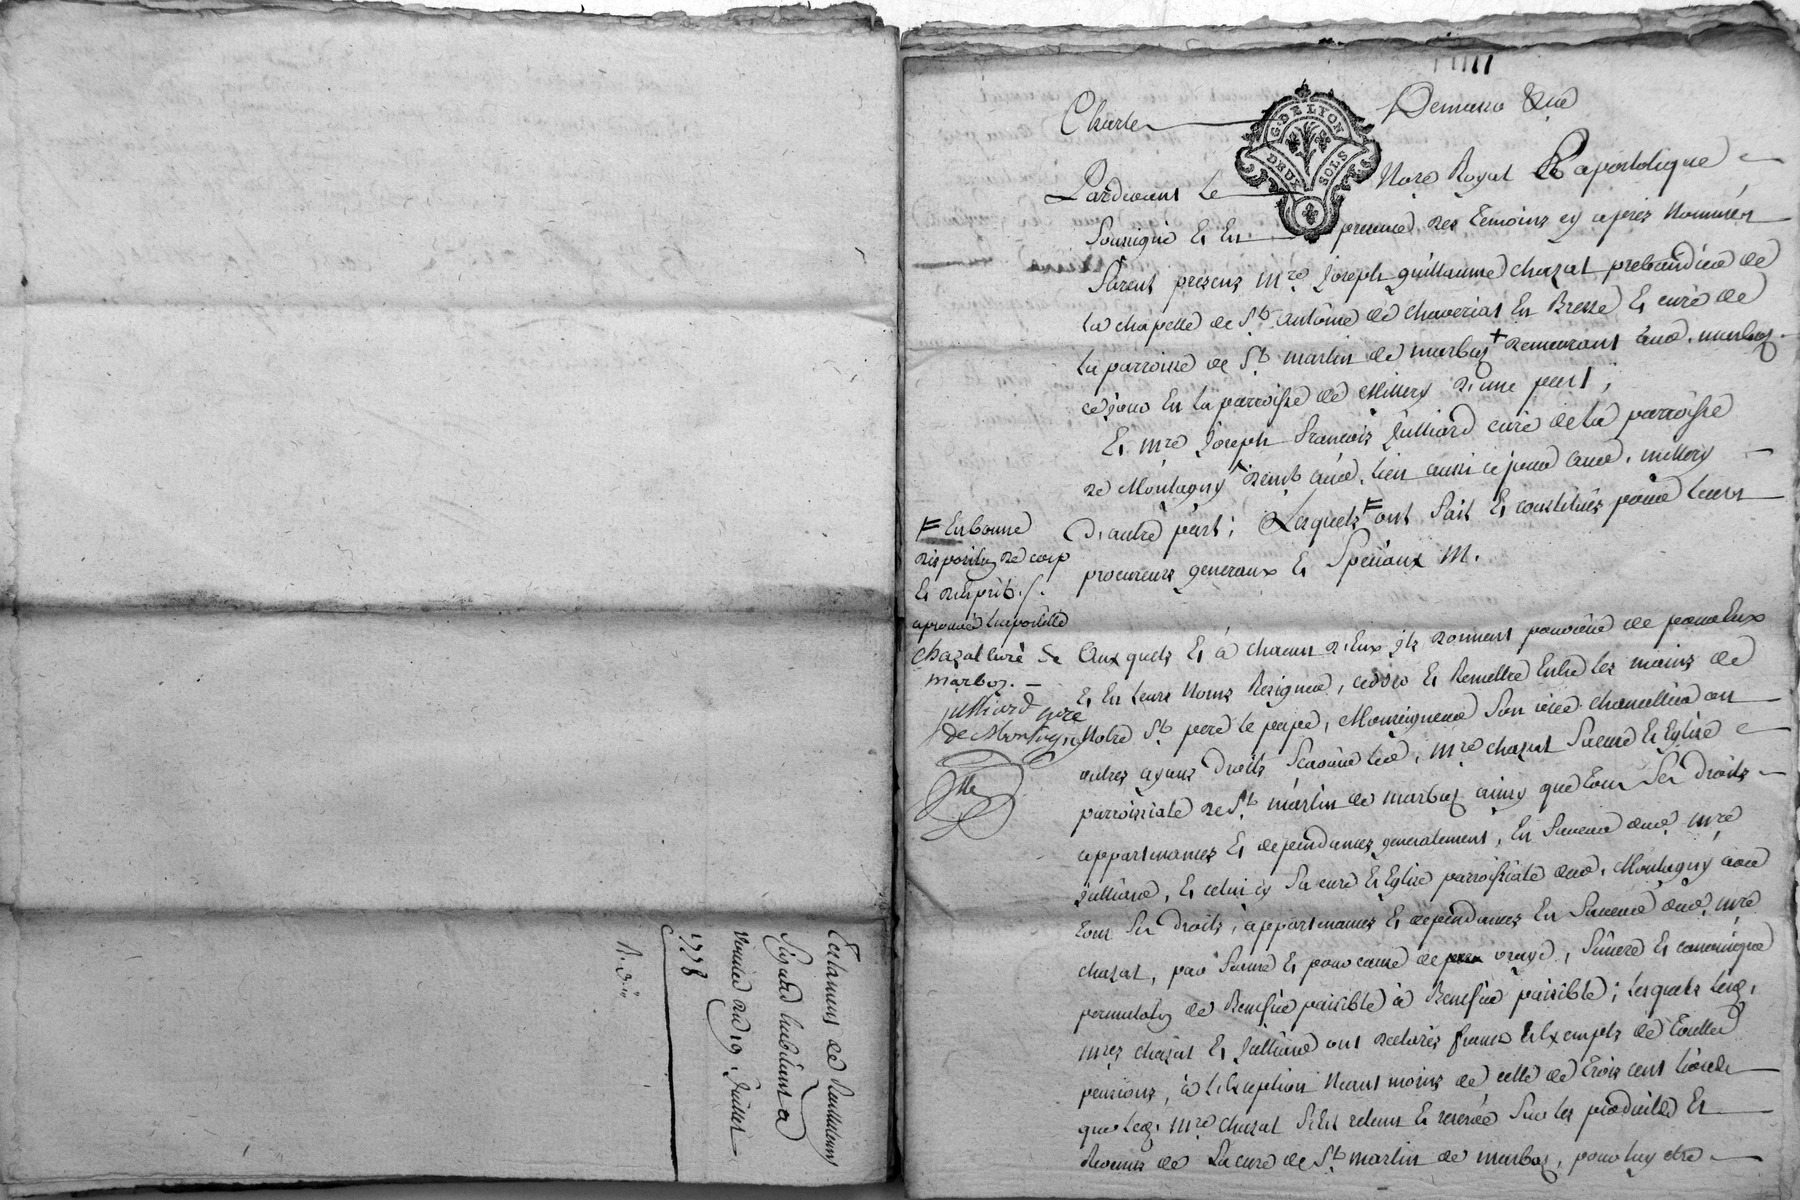 Testament de
Sigaud habitant a
vourles du 19. Juillet
1778
G. DE LYON
DEUX SOLS
Pardevant Le Nore Royal & apostolique
soussigné Et En presence des temoins cy apres Nommés
furent presens Mre Joseph guillaume chazal prebandier de
la chapelle de St. antoine de chaveriat En Bresse Et curé de
la parroisse de St martin de marboz + demeurant aud. marboz
ce jour En la parroisse de Millery d'une part ;
Et Mre Joseph francois Julliard curé de la parroisse
de Montagny demt aud. lieu aussi ce jour aud. millery
D'autre part ; Lesquels F ont fait Et constitués pour leurs
procureurs generaux Et speciaux M.
F En bonne
disposition de corp
Et d'Esprit ./.
aprouvé la apostille
chazal curé de
marboz. —
julliard cure
de Montagny
Auxquels Et à chacun d'Eux ils donnent pouvoir de pour Eux
Et En leurs Noms Resigner, ceder Et Remettre Entre les mains de
Notre St pere le pape, Monseigneur son vice chancellier ou
autres ayans droits scavoir led. Mre chazal sa cure Et Eglise
parroissiale de St. martin de marboz ainsy que tous ses droits
appartenances Et dependances generalement, En faveur dud. Mre
Julliard, Et celui cy sa cure Et Eglise parroissiale dud. Montagny avec
tous ses droits, appartenances Et dependances En faveur dud. Mre
chazal, par forme Et pour cause de vraye, sincere Et canonique
permutation de Benefice paisible à Benefice paisible ; lesquels
Mres chazal Et Julliard ont declarés francs Et Exempts de toutes
pensions, à l'Exception Neant moins de celle de trois cent livres
que led. Mre chazal s'Est retenu Et reservée sur les produits Et
Revenus de sa cure de St. martin de marboz, pour luy etre